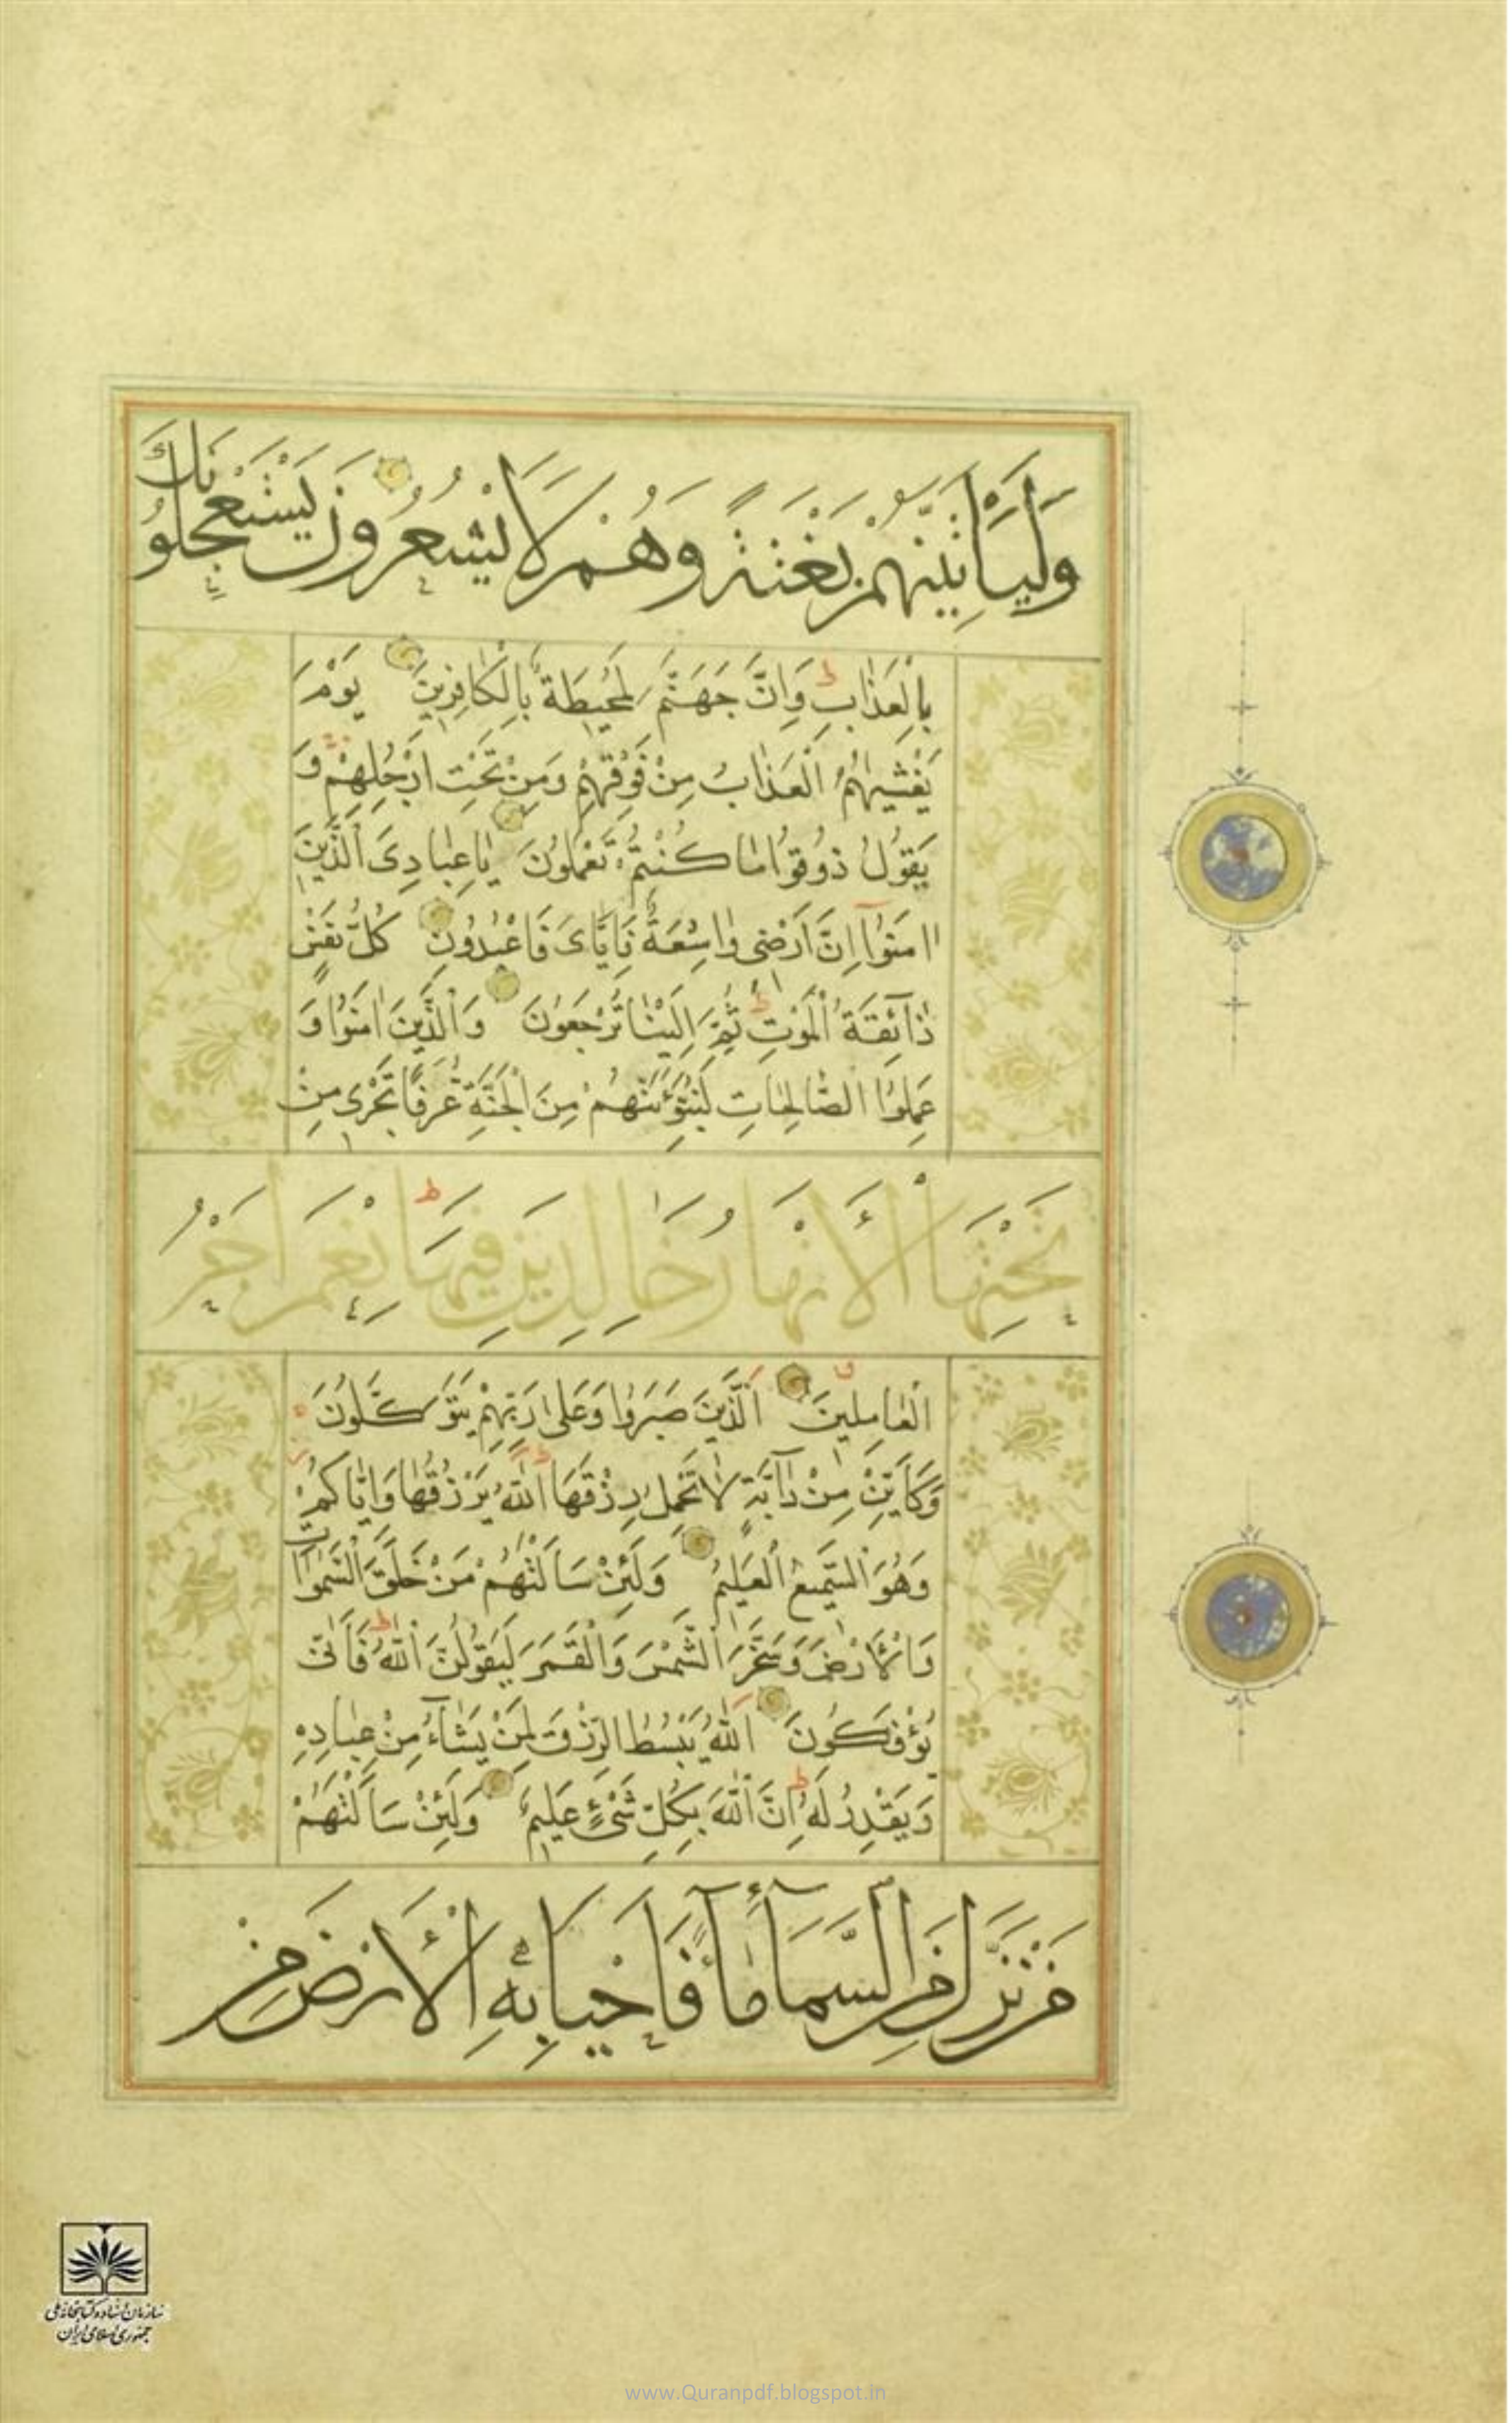 وَلَيَأْتِيَنَّهُمْ بَغْتَةً وَهُمْ لَا يَشْعُرُونَ يَسْتَعْجِلُونَكَ
بِالْعَذَابِ وَاِنَّ جَهَنَّمَ لَمُحِيطَةٌ بِالْكَافِرِينَ يَوْمَ
يَغْشٰيهُمُ الْعَذَابُ مِنْ فَوْقِهِمْ وَمِنْ تَحْتِ اَرْجُلِهِمْ وَ
يَقُولُ ذُوقُوا مَا كُنْتُمْ تَعْمَلُونَ يَا عِبَادِىَ الَّذِينَ
اٰمَنُوٓا اِنَّ اَرْضِى وَاسِعَةٌ فَاِيَّاىَ فَاعْبُدُونِ كُلُّ نَفْسٍ
ذَآئِقَةُ الْمَوْتِ ثُمَّ اِلَيْنَا تُرْجَعُونَ وَالَّذِينَ اٰمَنُوا وَ
عَمِلُوا الصَّالِحَاتِ لَنُبَوِّئَنَّهُمْ مِنَ الْجَنَّةِ غُرَفًا تَجْرِى مِنْ
تَحْتِهَا الْأَنْهَارُ خَالِدِينَ فِيهَا نِعْمَ اَجْرُ
الْعَامِلِينَ اَلَّذِينَ صَبَرُوا وَعَلٰى رَبِّهِمْ يَتَوَكَّلُونَ
وَكَاَيِّنْ مِنْ دَآبَّةٍ لَا تَحْمِلُ رِزْقَهَا اَللّٰهُ يَرْزُقُهَا وَاِيَّاكُمْ
وَهُوَ السَّمِيعُ الْعَلِيمُ وَلَئِنْ سَاَلْتَهُمْ مَنْ خَلَقَ السَّمٰوَاتِ
وَالْأَرْضَ وَسَخَّرَ الشَّمْسَ وَالْقَمَرَ لَيَقُولُنَّ اللّٰهُ فَاَنّٰى
يُؤْفَكُونَ اَللّٰهُ يَبْسُطُ الرِّزْقَ لِمَنْ يَشَآءُ مِنْ عِبَادِهِ
وَيَقْدِرُ لَهُ اِنَّ اللّٰهَ بِكُلِّ شَىْءٍ عَلِيمٌ وَلَئِنْ سَاَلْتَهُمْ
مَنْ نَزَّلَ مِنَ السَّمَآءِ مَآءً فَاَحْيَا بِهِ الْأَرْضَ مِنْ
سازمان اسناد و کتابخانه ملی
جمهوری اسلامی ایران
www.Quranpdf.blogspot.in